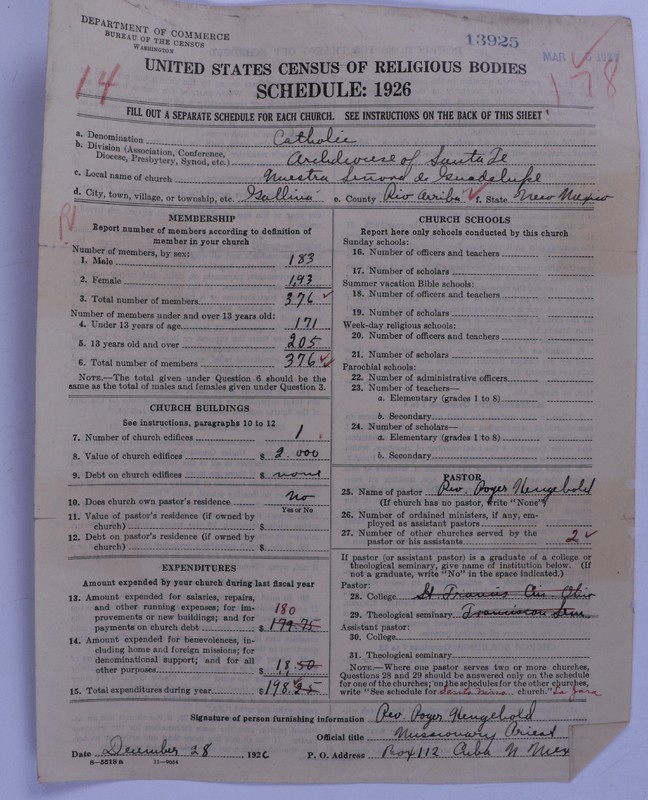 DEPARTMENT OF COMMERCE
BUREAU OF THE CENSUS
WASHINGTON
13925
MAR
14
178
UNITED STATES CENSUS OF RELIGIOUS BODIES
SCHEDULE: 1926
FILL OUT A SEPARATE SCHEDULE FOR EACH CHURCH. SEE INSTRUCTIONS ON THE BACK OF THIS SHEET
a. Denomination Catholic
b. Division (Association, Conference, Diocese, Presbytery, Synod, etc.) Archdiocese of Santa Fe
c. Local name of church Nuestra Señora de Guadelupe
d. City, town, village, or township, etc. Gallina e. County Rio Arriba f. State New Mexico
MEMBERSHIP
Report number of members according to definition of
member in your church
Number of members, by sex:
1. Male 183
2. Female 193
3. Total number of members 376
Number of members under and over 13 years old:
4. Under 13 years of age 171
5. 13 years old and over 205
6. Total number of members 376
NOTE.—The total given under Question 6 should be the
same as the total of males and females given under Question 3.
CHURCH BUILDINGS
See instructions, paragraphs 10 to 12
7. Number of church edifices 1
8. Value of church edifices $ 2.000
9. Debt on church edifices $ none
10. Does church own pastor's residence No
Yes or No
11. Value of pastor's residence (if owned by
church) $
12. Debt on pastor's residence (if owned by
church) $
EXPENDITURES
Amount expended by your church during last fiscal year
13. Amount expended for salaries, repairs,
and other running expenses; for im-
provements or new buildings; and for 180
payments on church debt $ 179.75
14. Amount expended for benevolences, in-
cluding home and foreign missions; for
denominational support; and for all
other purposes 18.50
15. Total expenditures during year $ 198.25
CHURCH SCHOOLS
Report here only schools conducted by this church
Sunday schools:
16. Number of officers and teachers
17. Number of scholars
Summer vacation Bible schools:
18. Number of officers and teachers
19. Number of scholars
Week-day religious schools:
20. Number of officers and teachers
21. Number of scholars
Parochial schools:
22. Number of administrative officers
23. Number of teachers—
a. Elementary (grades 1 to 8)
b. Secondary
24. Number of scholars—
a. Elementary (grades 1 to 8)
b. Secondary
PASTOR
25. Name of pastor Rev. Roger Hengebold
(If church has no pastor, write "None")
26. Number of ordained ministers, if any, em-
ployed as assistant pastors
27. Number of other churches served by the
pastor or his assistants 2
If pastor (or assistant pastor) is a graduate of a college or
theological seminary, give name of institution below. (If
not a graduate, write "No" in the space indicated.)
Pastor:
28. College St Francis Cin. Ohio
29. Theological seminary Franciscan Sem
Assistant pastor:
30. College
31. Theological seminary
NOTE.—Where one pastor serves two or more churches,
Questions 28 and 29 should be answered only on the schedule
for one of the churches; on the schedules for the other churches,
write "See schedule for Santo Nino church." La Jara
Signature of person furnishing information Rev. Roger Hengebold
Official title Missionary Priest
Date December 28, 1926 P. O. Address Box 112 Cuba N Mex
8—5518a 11—9664